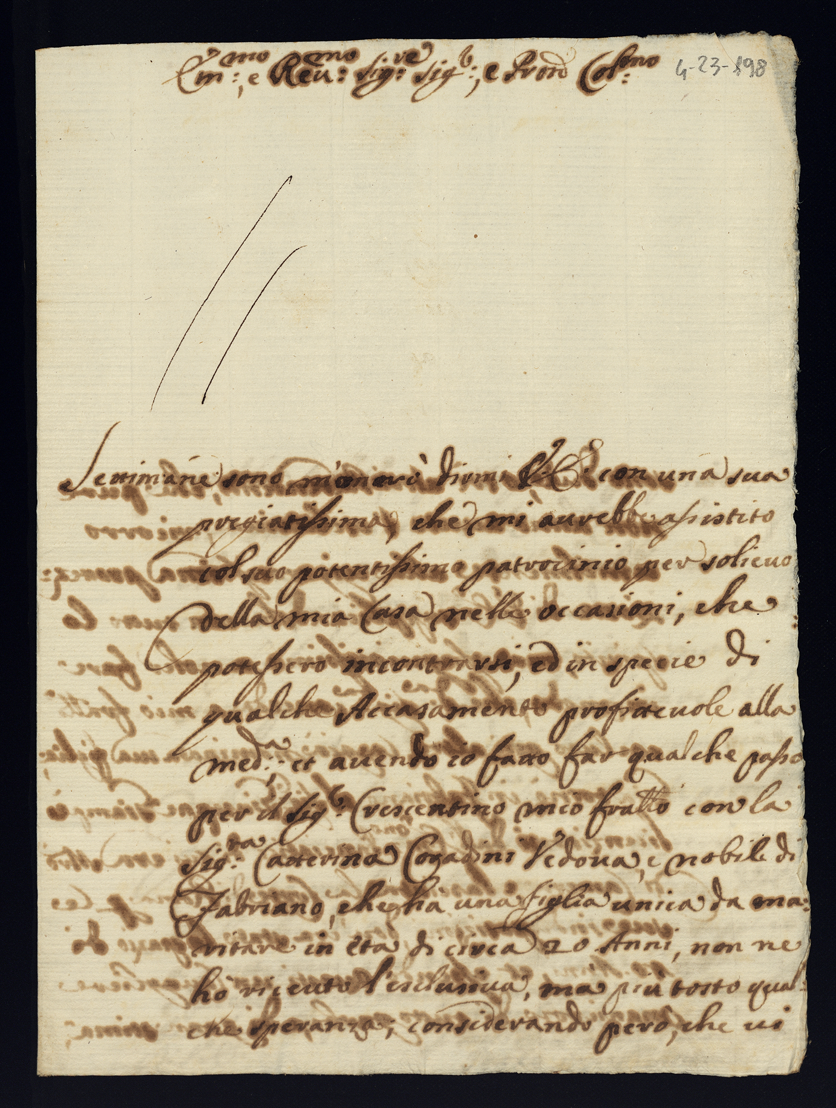 Em:mo, e Reu:mo Sig:re Sig:r, e Prone Col:mo
4-23-198
Settimane sono m'onorò dirmi V.E. con una sua
pregiatissima, che mi aurebbe assistito
col suo potentissimo patrocinio per solieuo
della mia Casa nelle occasioni, che
potessero incontrarsi, ed in specie di
qualche Accasamento profiteuole alla
med:a et auendo io fatto far qualche passo
per il Sig:r Crescentino mio fratto con la
Sig:ra Catterina Vedoua, e nobile di
Fabriano, che ha una figlia unica da ma:
ritare in età di circa 20 Anni, non ne
hò riceuto l'esclusiua, ma più tosto qual:
che speranza; considerando però, che ui